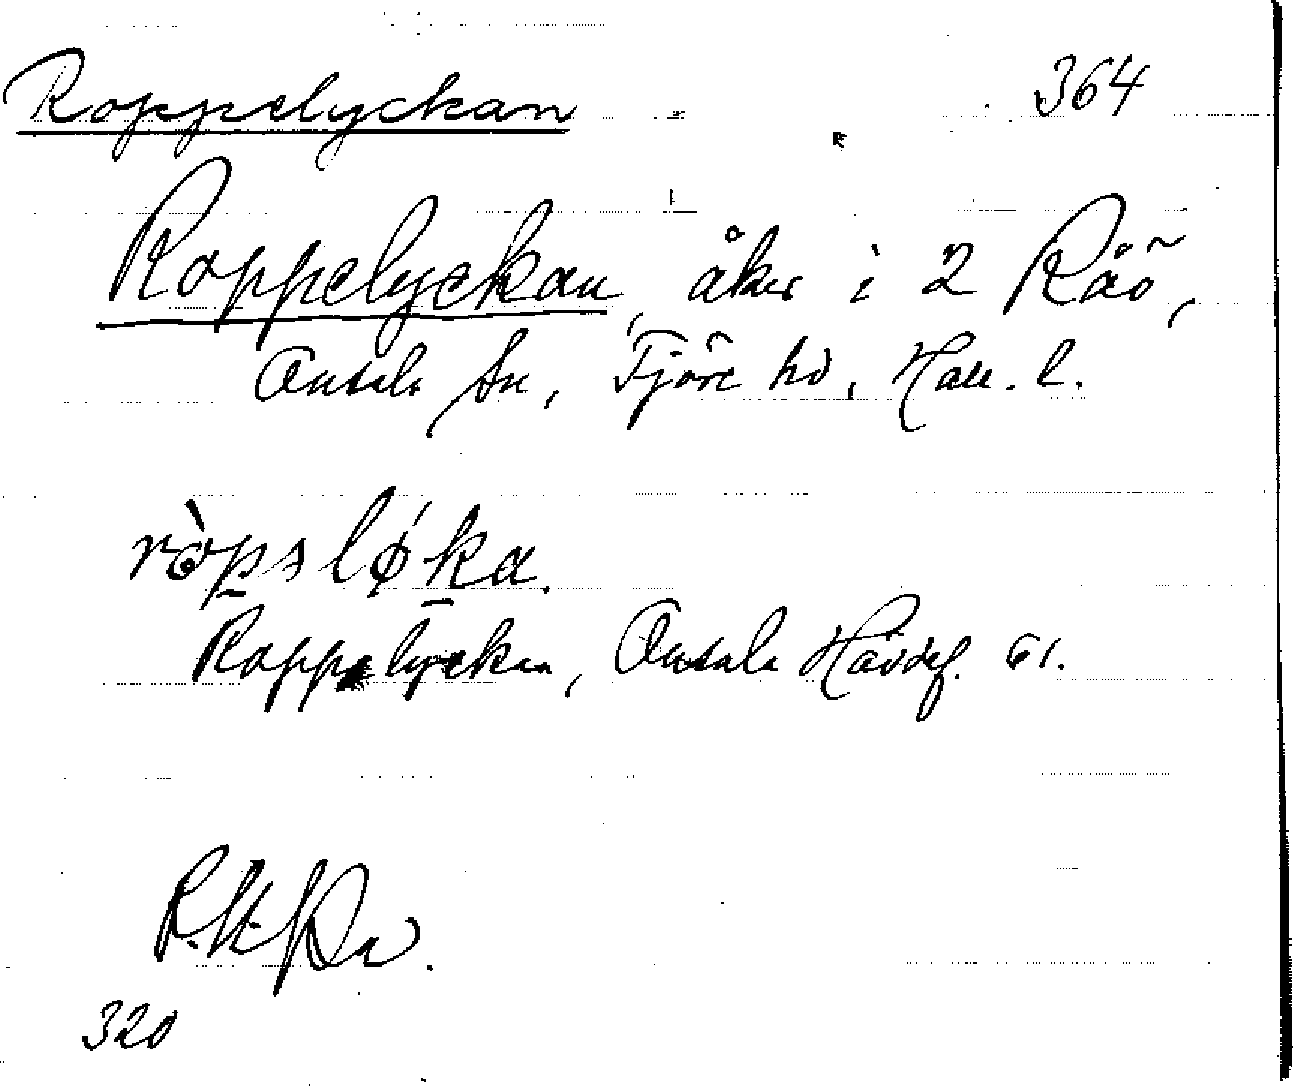 Roppelyckan 364
Roppelyckan, åker i 2 Råö,
Onsala sn, Fjäre hd, Hall. l.
ròpsløka.
Roppelyckan, Onsala Hävdef. 61.
320